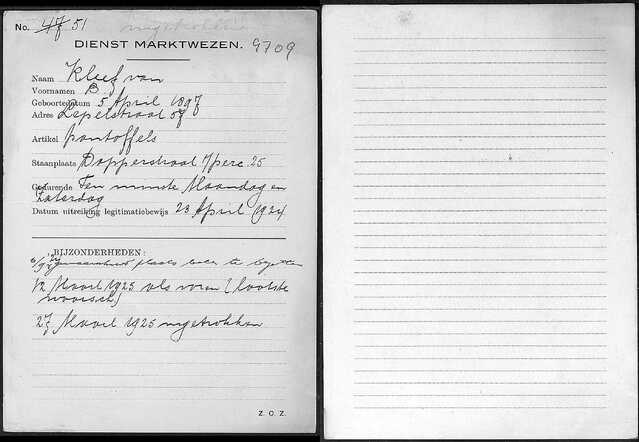 No. 47 51 ingetrokken
DIENST MARKTWEZEN. 9709
Naam Kleef van
Voornamen B.
Geboortedatum 5 April 1897
Adres Lepelstraat 57
Artikel pantoffels
Staanplaats Dapperstraat 7/perc. 25
Gedurende Ten minste Maandag en
Zaterdag
Datum uitreiking legitimatiebewijs 23 April 1924
BIJZONDERHEDEN:
plaats beter te
12 Maart 1925 als voren (laatste
27 Maart 1925 ingetrokken
Z. O. Z.